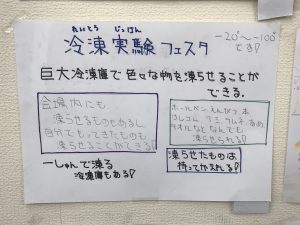 れいとう じっけん
冷凍実験フェスタ
-20°～-100°
です!
巨大冷凍庫で色々な物を凍らせることが
できる.
会場内にも
凍らせるものもあるし
自分でもってきたものも
凍らせることができる!
ボールペン、えんぴつ、本
けしゴム、グミ、ラムネ、あめ
タオルなどなんでも
凍らせられる!
一しゅんで凍る
冷凍庫もある!
凍らせたものは
持ってかえれる!